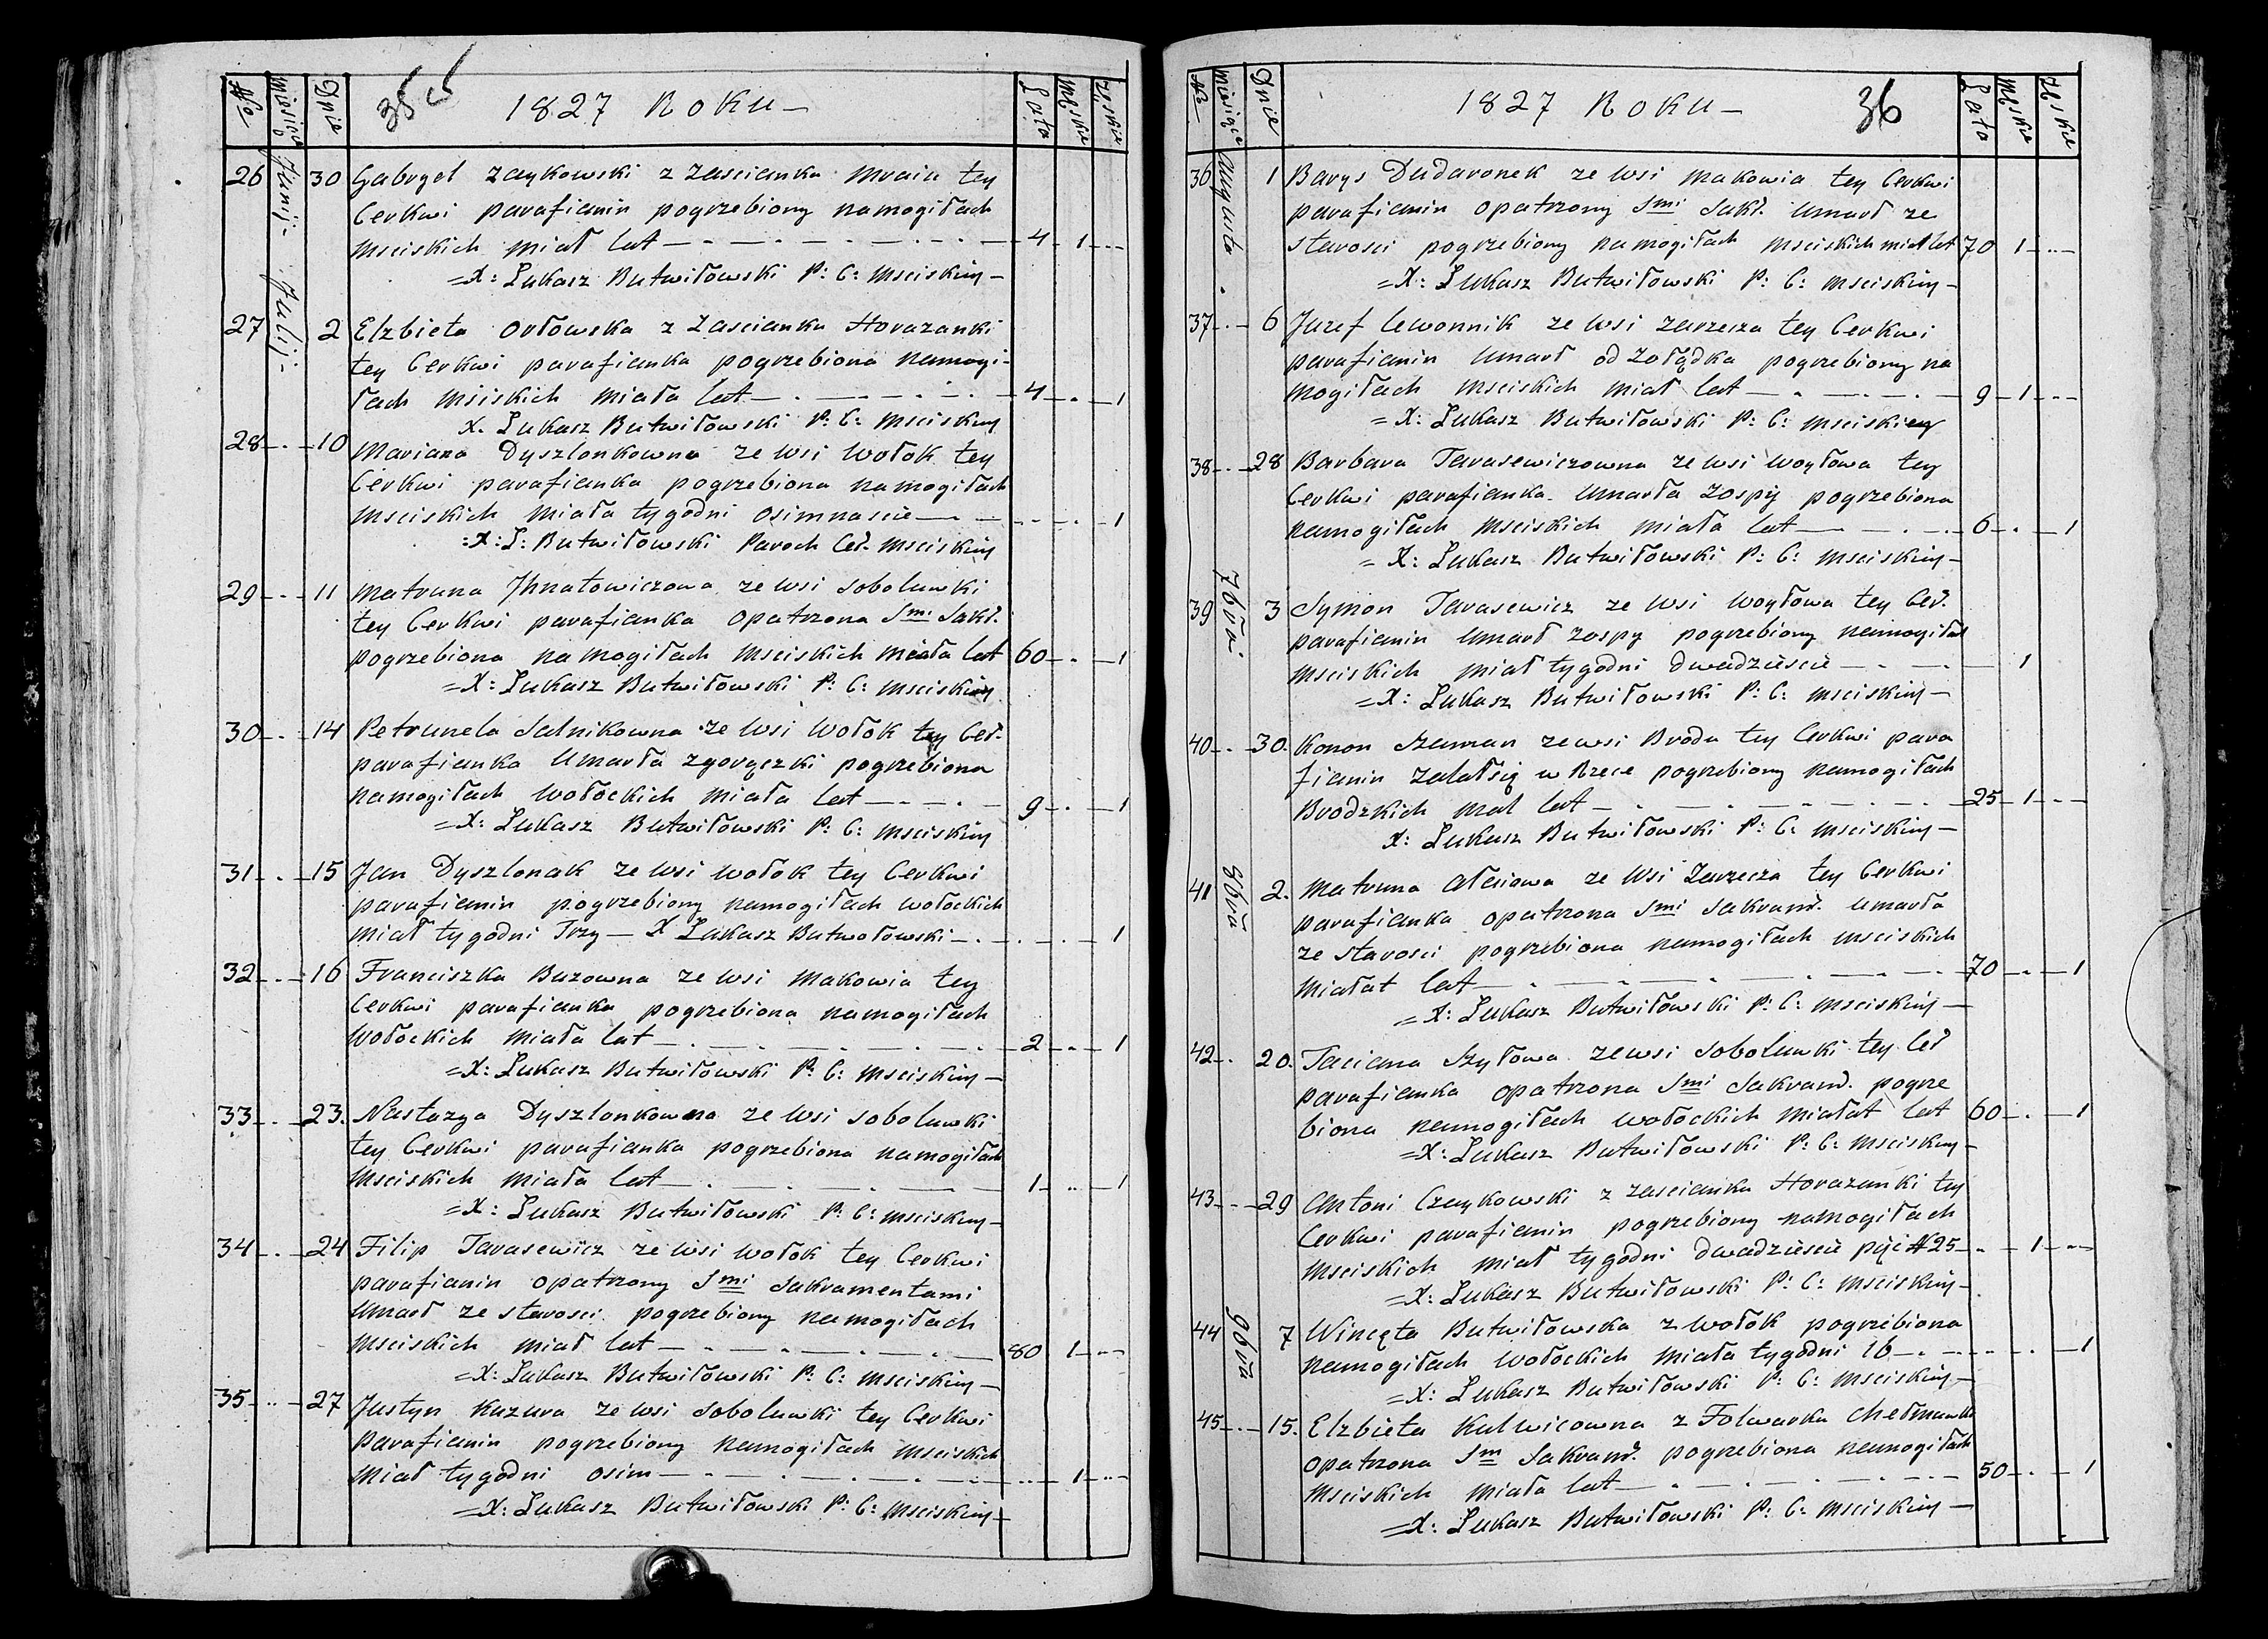 No Miesiąc Dnie 35 1827 Roku — Lata Męskie Żęskie
26 Junij 30 Gabryel Zaykowski z Zascianka Mraiu tey
Cerkwi parafianin pogrzebiony namogiłach
Msciskich miał lat — 4 — 1 —
=X: Łukasz Butwiłowski P: C: Msciskiey —
27 Julij 2 Elzbieta Orłowska z Zascianku Horazanki
tey Cerkwi parafianka pogrzebiona namogi-
łach Msiskich miała lat — 4 — 1
X. Łukasz Butwiłowski P: C: Msciskiey
28 — 10 Mariana Dyszlonkowna ze wsi Wołok tey
Cerkwi parafianka pogrzebiona namogiłach
Msciskich miała tygodni osimnascie — 1
:X: Ł: Butwiłowski Paroch Cer. Msciskiey
29 — 11 Matruna Jhnatowiczowa ze wsi Soboluwki
tey Cerkwi parafianka opatrzona Smi Sakr.
pogrzebiona namogiłach Msciskich miała lat 60 — 1
=X: Łukasz Butwiłowski P: C: Msciskiey
30 — 14 Petrunela Salnikowna ze wsi Wołok tey Cer.
parafianka Umarła zgorączki pogrzebiona
namogiłach Wołockich miała lat — 9 — 1
=X: Łukasz Butwiłowski P: C: Msciskiey
31 — 15 Jan Dyszlonak ze wsi Wołok tey Cerkwi
parafianin pogrzebiony namogiłach Wołockich
miał tygodni Trzy — X Łukasz Butwołowski — 1
32 — 16 Franciszka Buzowna ze wsi Makowia tey
Cerkwi parafianka pogrzebiona namogiłach
Wołockich miała lat — 2 — 1
=X: Łukasz Butwiłowski P: C: Msciskiey —
33 — 23. Nastazya Dyszlonkowna ze wsi Soboluwki
tey Cerkwi parafianka pogrzebiona namogiłach
Msciskich miała lat — 1 — 1
=X: Łukasz Butwiłowski P: C: Msciskiey —
34 — 24 Filip Tarasewicz ze wsi Wołok tey Cerkwi
parafianin opatrzony Smi Sakramentami
Umarł ze starosci pogrzebiony namogiłach
Msciskich miał lat — 80 1 —
=X: Łukasz Butwiłowski P: C: Msciskiey —
35 — 27 Justyn Kuzura ze wsi Soboluwki tey Cerkwi
parafianin pogrzebiony namogiłach Msciskich
miał tygodni osim — 1 —
=X: Łukasz Butwiłowski P: C: Msciskiey —
No Miesiąc Dnie 1827 Roku — 36 Lata Męskie Żęskie
36 Augusta 1 Barys Dudaronek ze wsi Makowia tey Cerkwi
parafianin opatrzony Smi Sakr. Umarł ze
starosci pogrzebiony namogiłach Msciskich miał lat 70 1 —
=X: Łukasz Butwiłowski P: C: Msciskiey —
37 — 6 Juzef Lewonnik ze wsi Zarzecza tey Cerkwi
parafianin Umarł od Zołądka pogrzebiony na
mogiłach Msciskich miał lat — 9 — 1 —
=X: Łukasz Butwiłowski P: C: Msciskiey
38 — 28 Barbara Tarasewiczowna ze wsi Woytowa tey
Cerkwi parafianka Umarła zospij pogrzebiona
namogiłach Msciskich miała lat — 6 — 1
=X: Łukasz Butwiłowski P: C: Msciskiey —
39 7bra 3 Symon Tarasewicz ze wsi Woytowa tey Cer.
parafianin Umarł zospy pogrzebiony namogiłach
Msciskich miał tygodni dwadziescie — 1
=X: Łukasz Butwiłowski P: C: Msciskiey —
40 — 30. Konon Szaman zewsi Broda tey Cerkwi para
fianin zalałsię w Rzece pogrzebiony namogiłach
Brodzkich mał lat — 25 — 1 —
X: Łukasz Butwiłowski P: C: Msciskiey —
41 8bra 2. Matruna ze Wsi Zarzecza tey Cerkwi
parafianka opatrzona Smi Sakram. Umarła
ze starosci pogrzebiona namogiłach Msciskich
miałat lat — 70 — 1
=X: Łukasz Butwiłowski P: C: Msciskiey —
42 — 20. Taciana Szyłowa zewsi Soboluwki tey Cer
parafianka opatrzona Smi Sakram. pogrze
biona namogiłach Wołockich miałat lat 60 — 1
=X: Łukasz Butwiłowski P: C: Msciskiey —
43 — 29 Antoni Czaykowski z Zascianku Horazanki tey
Cerkwi parafianin pogrzebiony namogiłach
Msciskich miał tygodni dwadziescie pięć N 25 — 1 —
=X: Łukasz Butwiłowski P: C: Msciskiey —
44 9bra 7 Wincęta Butwiłowska z Wołok pogrzebiona
namogiłach Wołockich miała tygodni 16 — 1
=X: Łukasz Butwiłowski P: C: Msciskiey —
45 — 15. Elzbieta Kulwicowna z Folwarku
opatrzona Sm Sakram. pogrzebiona namogiłach
Msciskich miała lat — 50 — 1
=X: Łukasz Butwiłowski P: C: Msciskiey —